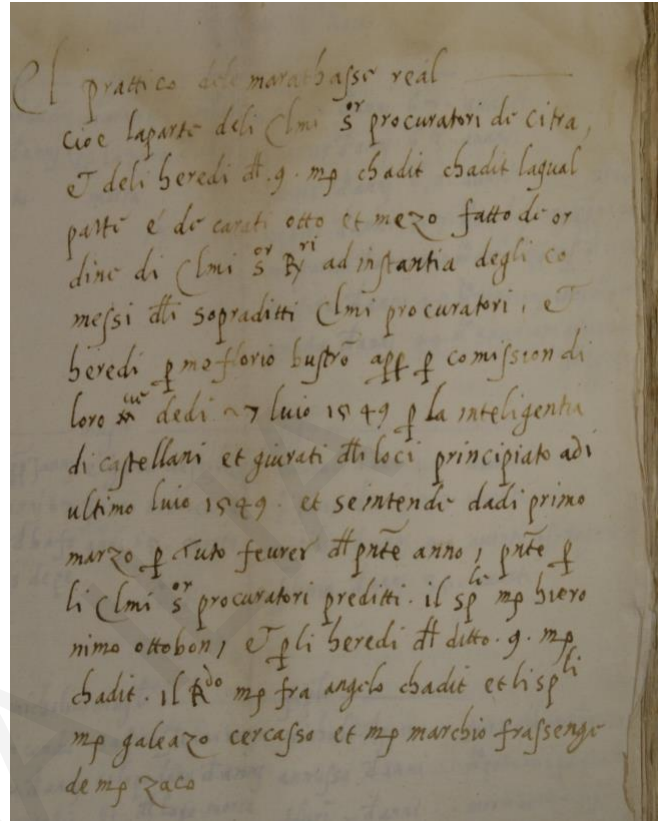 El prattico dele marathasse real
cioe laparte deli Clmi S.or procuratori de citra,
et deli heredi dl. q. mp chadit chadit laqual
parte é de carati otto et mezo fatto de or
dine di Clmi S.or R.ri ad instantia degli co
messi dli sopraditti Clmi procuratori, et
heredi p mo florio bustrō app p comission di
loro dedi 27 luio 1549 p la inteligentia
di castellani et giurati dli loci principiato adi
ultimo luio 1549. et se intende dadi primo
marzo p tuto feurer dl pnte anno, pnte p
li Clmi S.or procuratori preditti. il sp.le mp hiero
nimo ottobon, et p li heredi dl ditto. q. mp
chadit. il R.do mp fra angelo chadit et li sp.li
mp galeazo cercasso et mp marchio frassenge
de mp zaco